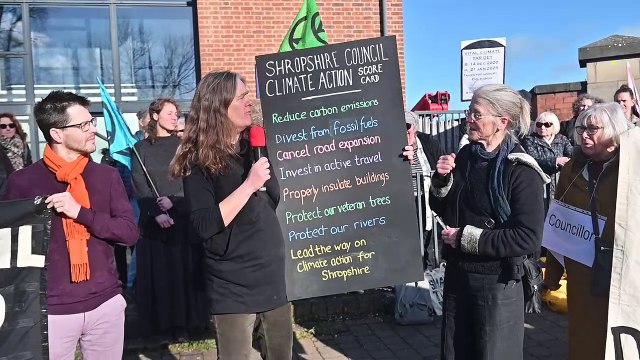 SHROPSHIRE COUNCIL
CLIMATE ACTION SCORE CARD
Reduce carbon emissions
Divest from Fossil fuels
Cancel road expansion
Invest in active travel
Properly insulate buildings
Protect our veteran trees
Protect our rivers
Lead the way on
Climate action for
Shropshire
VITAL CLIMATE
Councillor